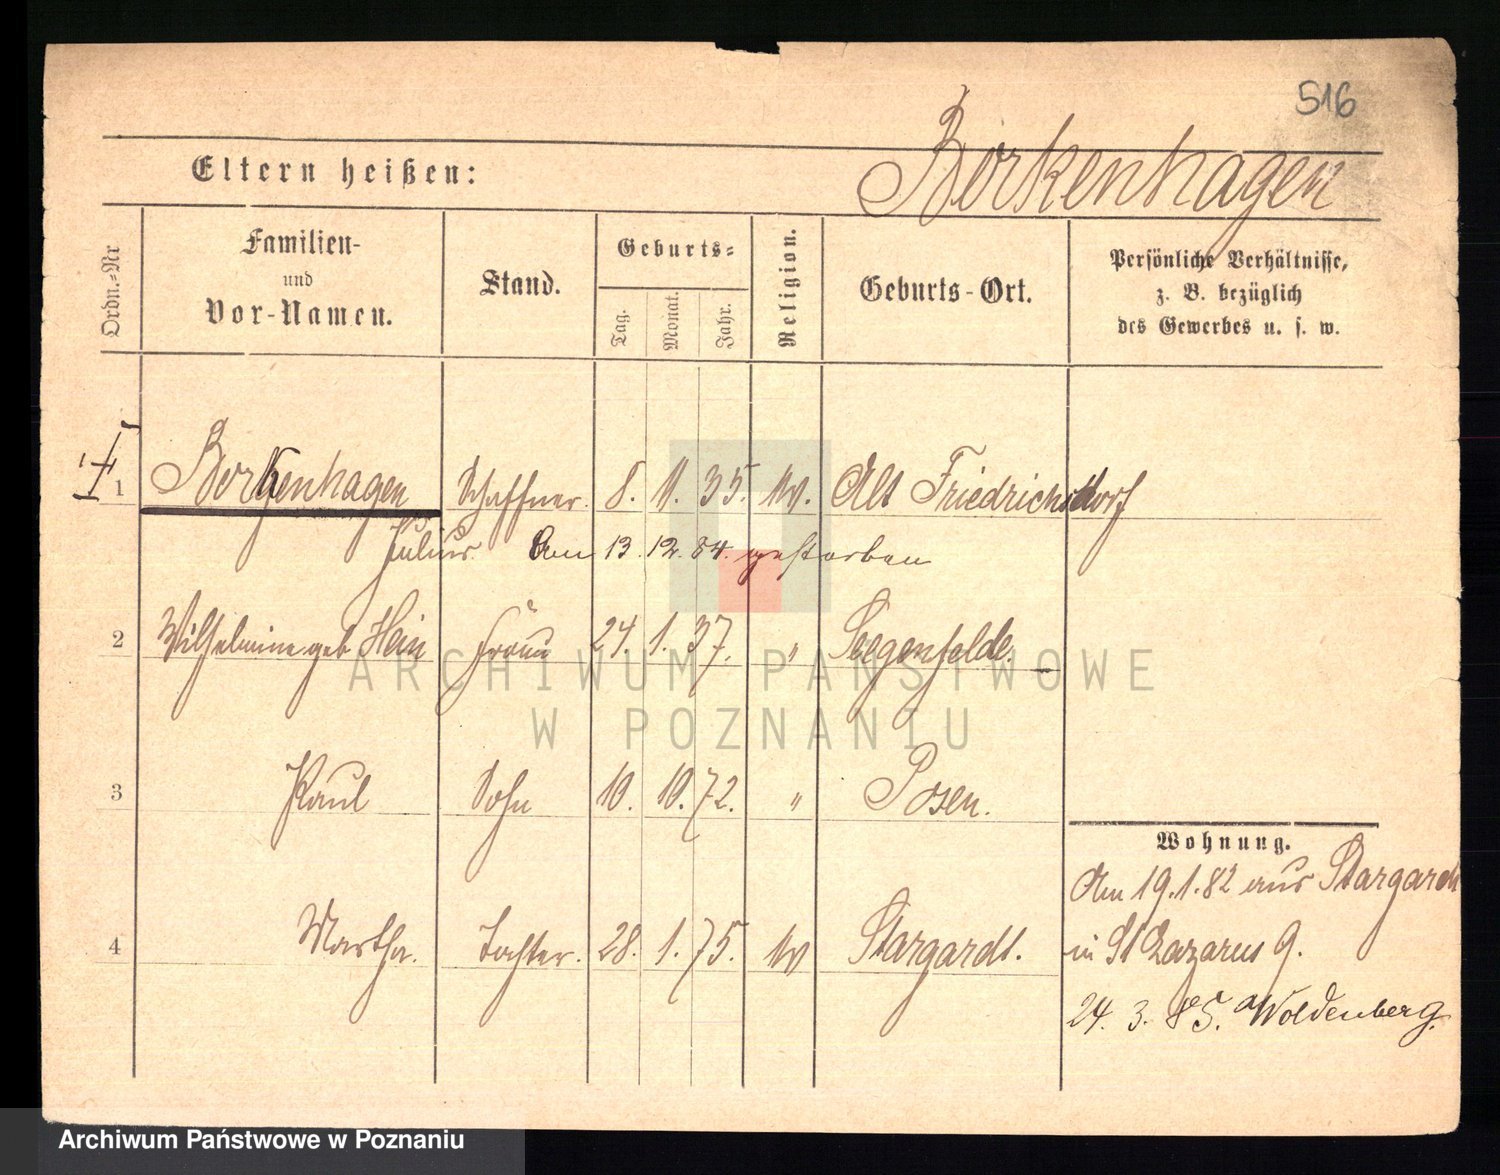 516
Borkenhagen
Eltern heißen:
Ordn.-Nr
Familien-
und
Vor-Namen.
Stand.
Geburts-
Tag. Monat. Jahr.
Religion.
Geburts-Ort.
Persönliche Verhältnisse,
z. B. bezüglich
des Gewerbes u. s. w.
1 Borkenhagen Schaffner. 8. 11. 35. ev. Alt Friedrichsdorf
Julius. Am 13. 12. 84. gestorben
2 Wilhelmine geb Hein Frau 24. 1. 37. " Seegenfelde.
3 Paul Sohn 10. 10. 72. " Posen.
4 Martha. Tochter. 28. 1. 75. ev Stargardt.
Wohnung.
Am 19.1.82 aus Stargardt
in St Lazarus 9.
24. 3. 85. Woldenberg.
ARCHIWUM PAŃSTWOWE
W POZNANIU
Archiwum Państwowe w Poznaniu